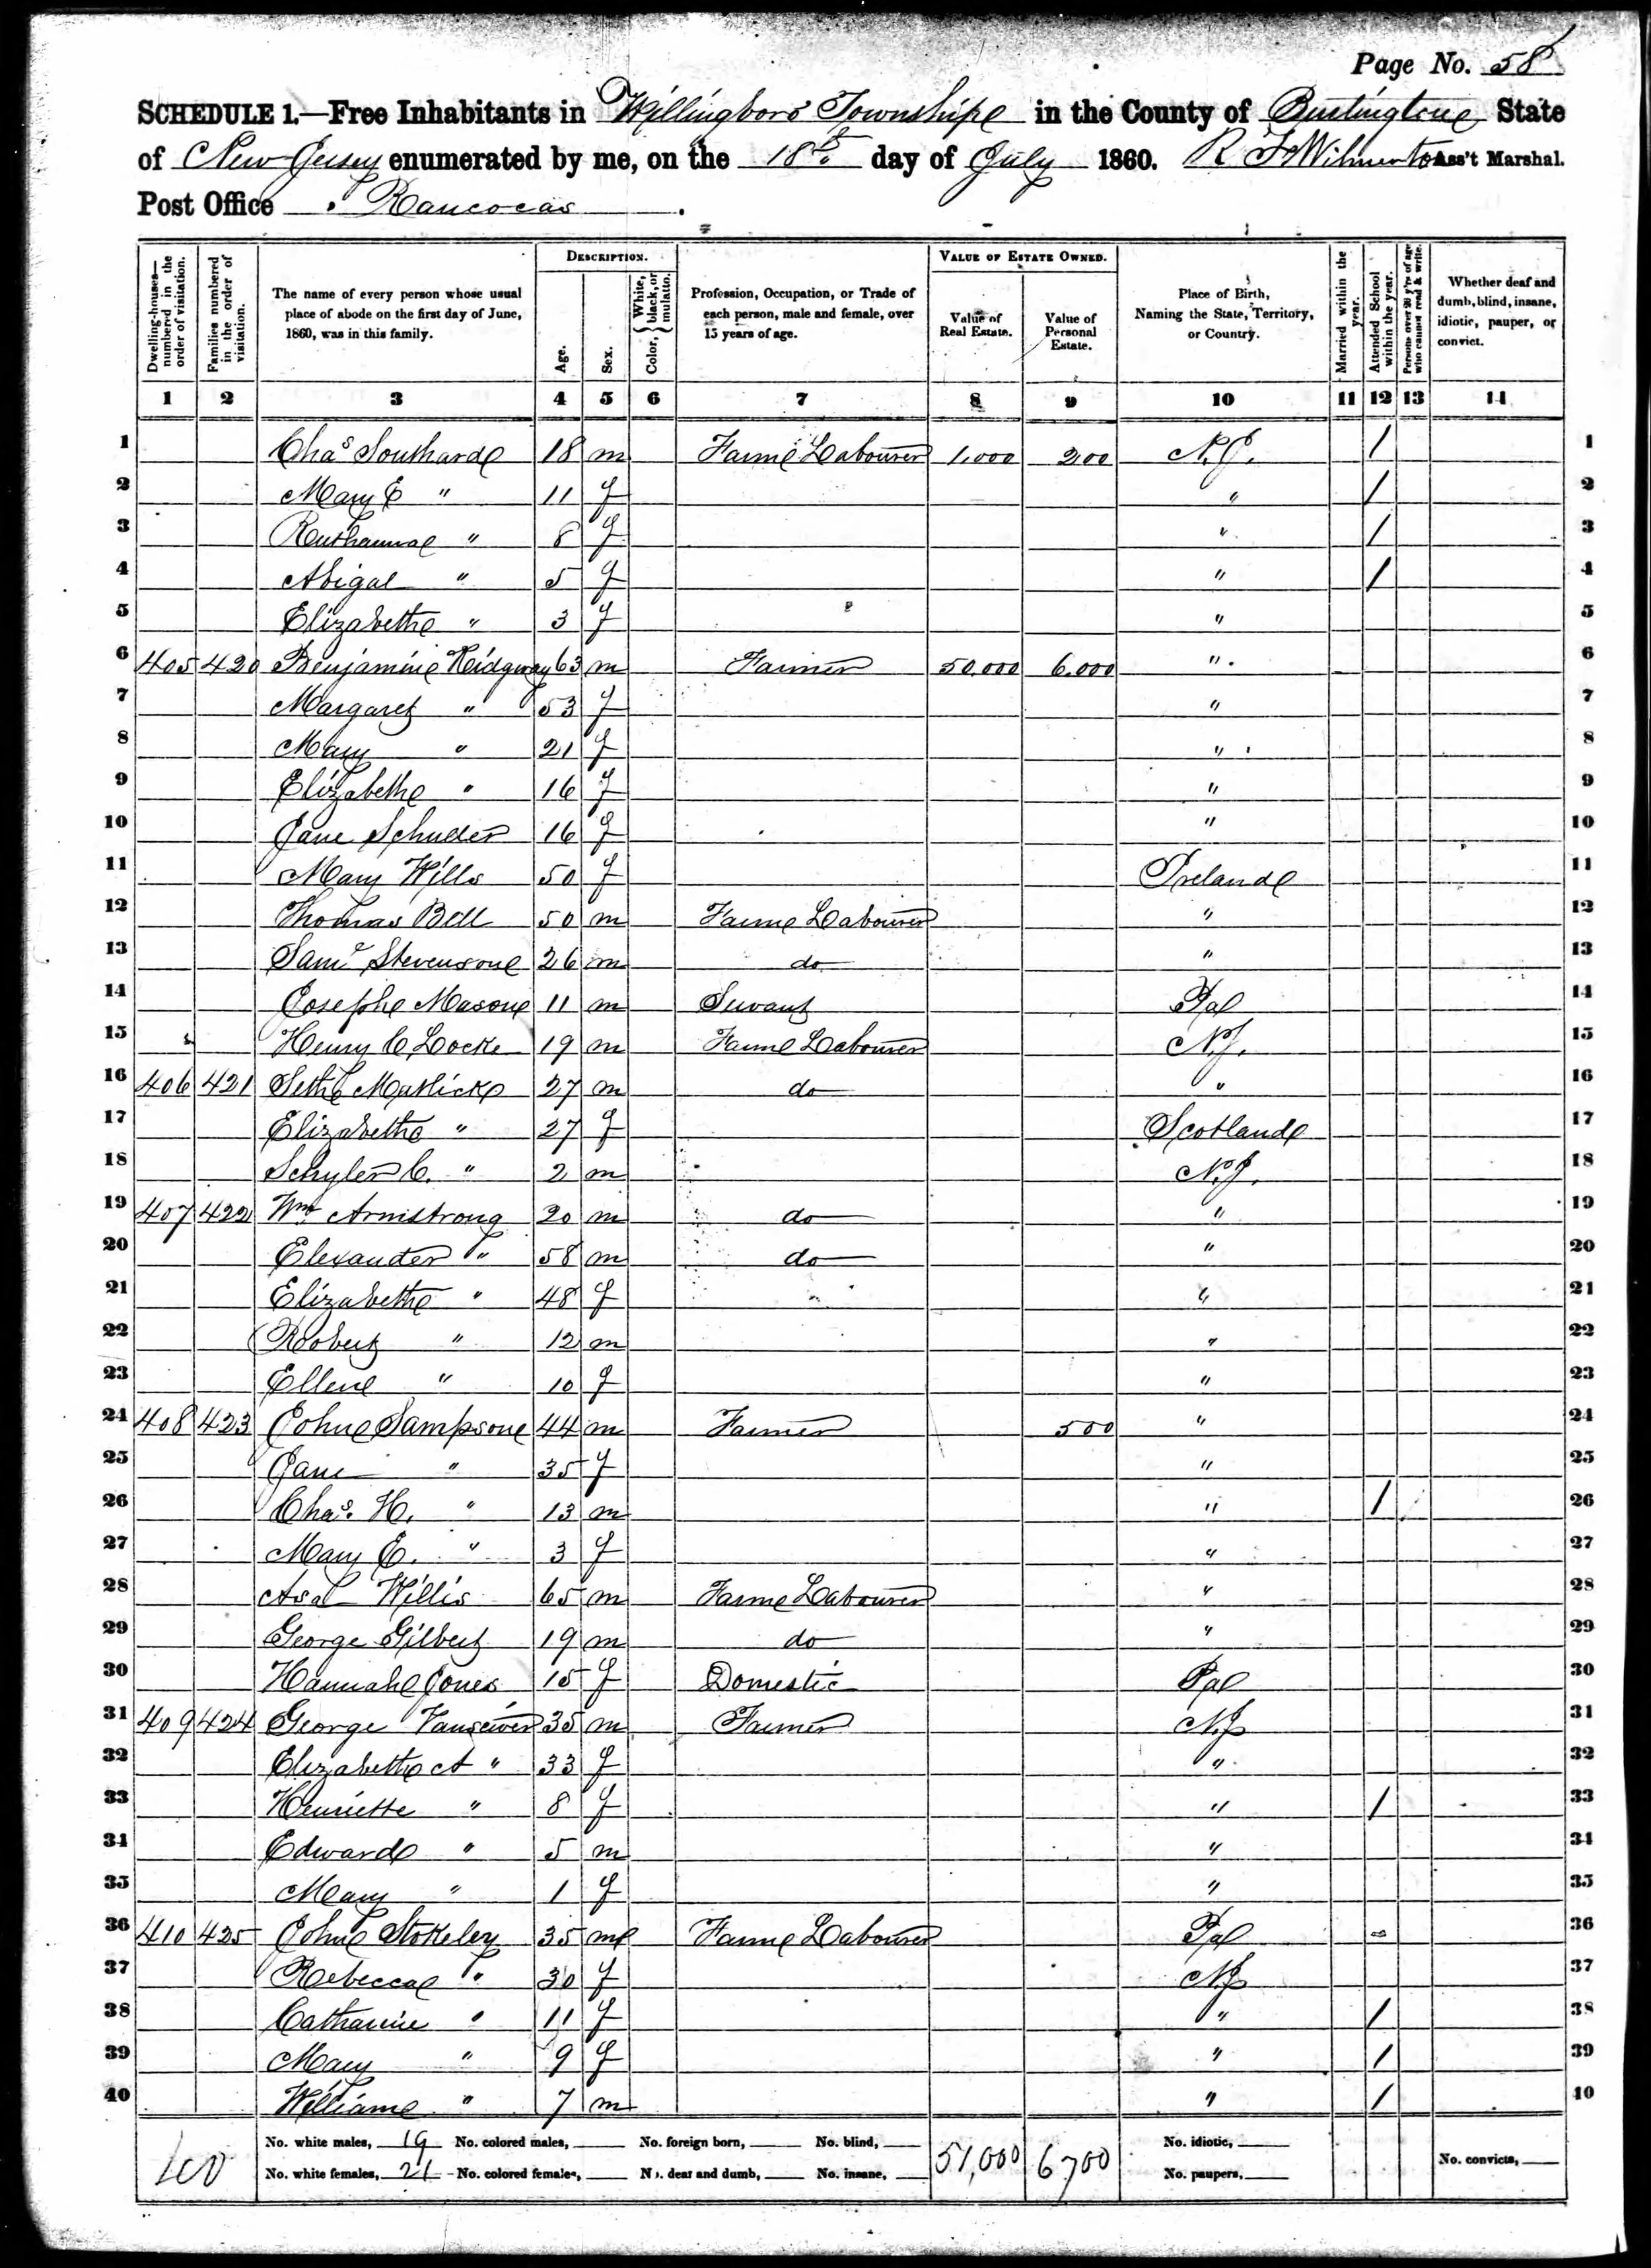 Page No. 58
SCHEDULE 1.—Free Inhabitants in Willingboro Township in the County of Burlington State
of New Jersey enumerated by me, on the 18th day of July 1860. R F Wilmerton Ass't Marshal.
Post Office Rancocas.
DESCRIPTION. VALUE OF ESTATE OWNED.
Dwelling-houses—numbered in the order of visitation. Families numbered in the order of visitation. The name of every person whose usual place of abode on the first day of June, 1860, was in this family. Age. Sex. Color, { White, black, or mulatto. Profession, Occupation, or Trade of each person, male and female, over 15 years of age. Value of Real Estate. Value of Personal Estate. Place of Birth, Naming the State, Territory, or Country. Married within the year. Attended School within the year. Persons over 20 y'rs of age who cannot read & write. Whether deaf and dumb, blind, insane, idiotic, pauper, or convict.
1 2 3 4 5 6 7 8 9 10 11 12 13 14
1 Chas Southard 18 m Farm Labourer 1,000 200 N.J. / 1
2 Mary E " 11 f " / 2
3 Ruthanna " 8 f " / 3
4 Abigal " 5 f " / 4
5 Elizabeth " 3 f " 5
6 405 420 Benjamin Ridgway 63 m Farmer 50,000 6,000 " 6
7 Margaret " 53 f " 7
8 Mary " 21 f " 8
9 Elizabeth " 16 f " 9
10 Jane 16 f " 10
11 Mary Wills 50 f Ireland 11
12 Thomas Bell 50 m Farm Labourer " 12
13 Saml Stevenson 26 m do " 13
14 Joseph Mason 11 m Servant Pa 14
15 Henry C Locke 19 m Farm Labourer N.J. 15
16 406 421 Seth Matlick 27 m do " 16
17 Elizabeth " 27 f Scotland 17
18 Schyler C. " 2 m N.J. 18
19 407 422 Wm Armstrong 20 m do " 19
20 Elexander " 58 m do " 20
21 Elizabeth " 48 f " 21
22 Robert " 12 m " 22
23 Ellen " 10 f " 23
24 408 423 John Sampson 44 m Farmer 500 " 24
25 Jane " 35 f " 25
26 Chas. H. " 13 m " / 26
27 Mary E. " 3 f " 27
28 Asa Willis 65 m Farm Labourer " 28
29 George Gilbert 19 m do " 29
30 Hannah Jones 15 f Domestic Pa 30
31 409 424 George Vansciver 35 m Farmer N.J 31
32 Elizabeth A " 33 f " 32
33 Henriette " 8 f " / 33
34 Edward " 5 m " 34
35 Mary " 1 f " 35
36 410 425 John Stokeley 35 m Farm Labourer Pa 36
37 Rebecca " 30 f N.J 37
38 Catharine " 11 f " / 38
39 Mary " 9 f " / 39
40 William " 7 m " / 40
No. white males, 19 No. colored males, No. foreign born, No. blind, 51,000 6700 No. idiotic,
No. white females, 21 No. colored females, No. deaf and dumb, No. insane, No. paupers, No. convicts,